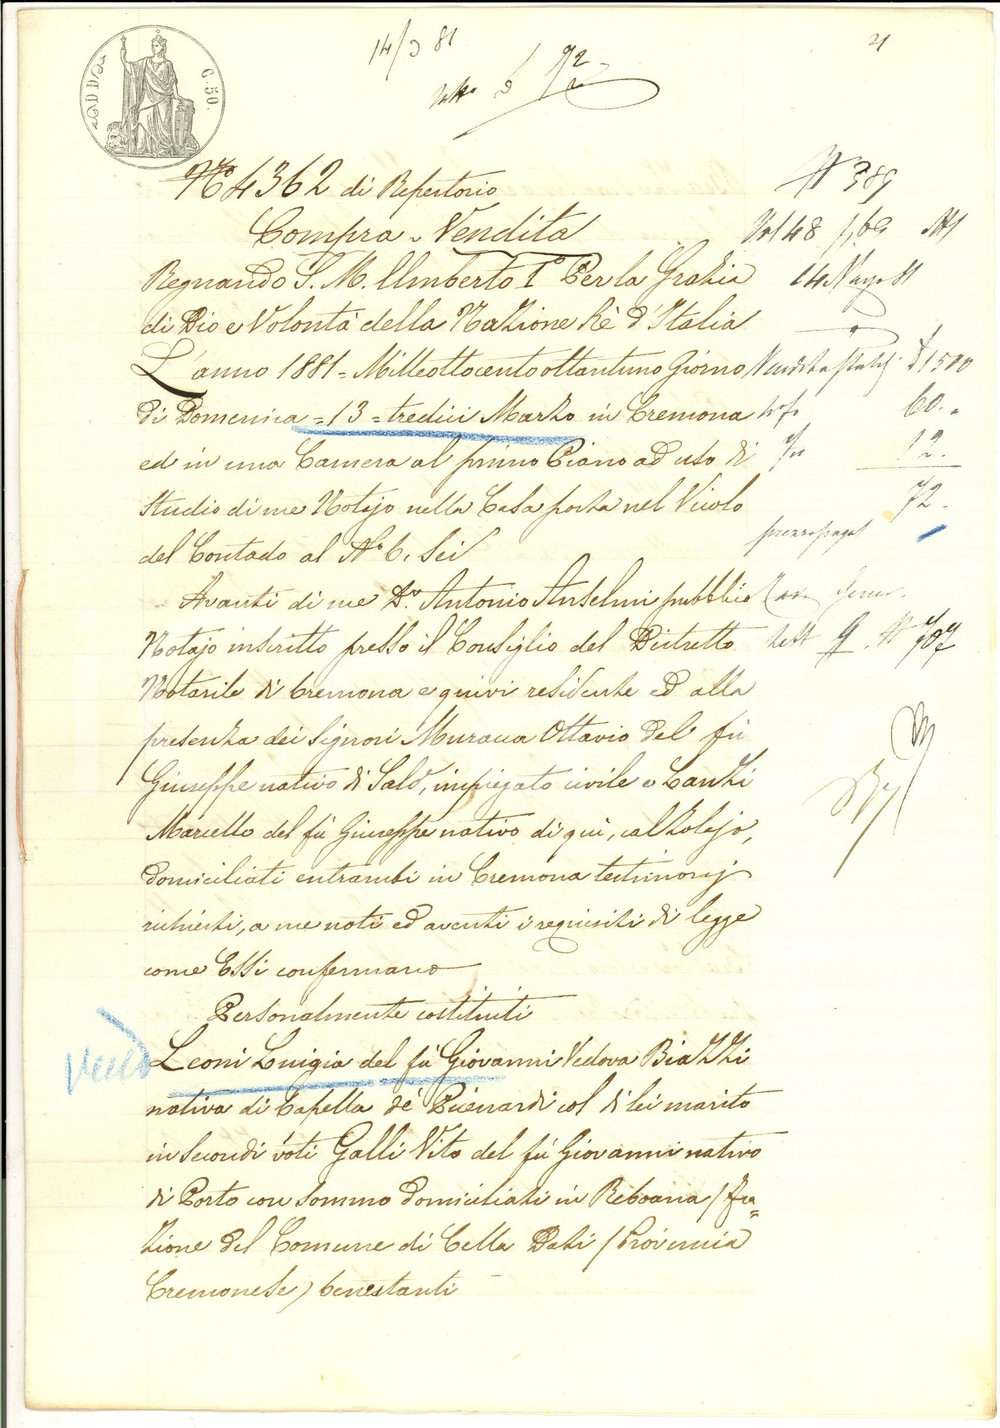 14/3 81
72
C. 50.
No 4362 di Repertorio
Compra-Vendita
Regnando S. M. Umberto I° Per la Grazia
di Dio e Volontà della Nazione Rè d'Italia
L'anno 1881 = Milleottocentottantuno Giorno
di Domenica = 13 = tredici Marzo in Cremona
ed in una Camera al primo Piano ad uso di
Studio di me Notajo nella Casa posta nel Vicolo
del Contado al N° 6. Sei
Avanti di me Dr Antonio Anselmi pubblico
Notajo inscritto presso il Consiglio del Distretto
Notarile di Cremona e quivi residente ed alla
presenza dei Signori Muracca Ottavio del fù
Giuseppe nativo di Salò, impiegato civile e Lanzi
Marcello del fù Giuseppe nativo di quì, calzolajo,
domiciliati entrambi in Cremona testimonj
richiesti, a me noti ed aventi i requisiti di legge
come Essi confermano
Personalmente costituiti
Leoni Luigia del fù Giovanni Vedova Biazzi
nativa di Capella de' Picenardi col di lei marito
in secondi vóti Galli Vito del fù Giovanni nativo
di Porto con Sommo domiciliati in Reboana / fra=
zione del Comune di Cella Dati / Provincia
Cremonese) benestanti
N° 389
Vol 48
14 Marzo 81
Vendita stabili £ 1500
60.
12.
72.